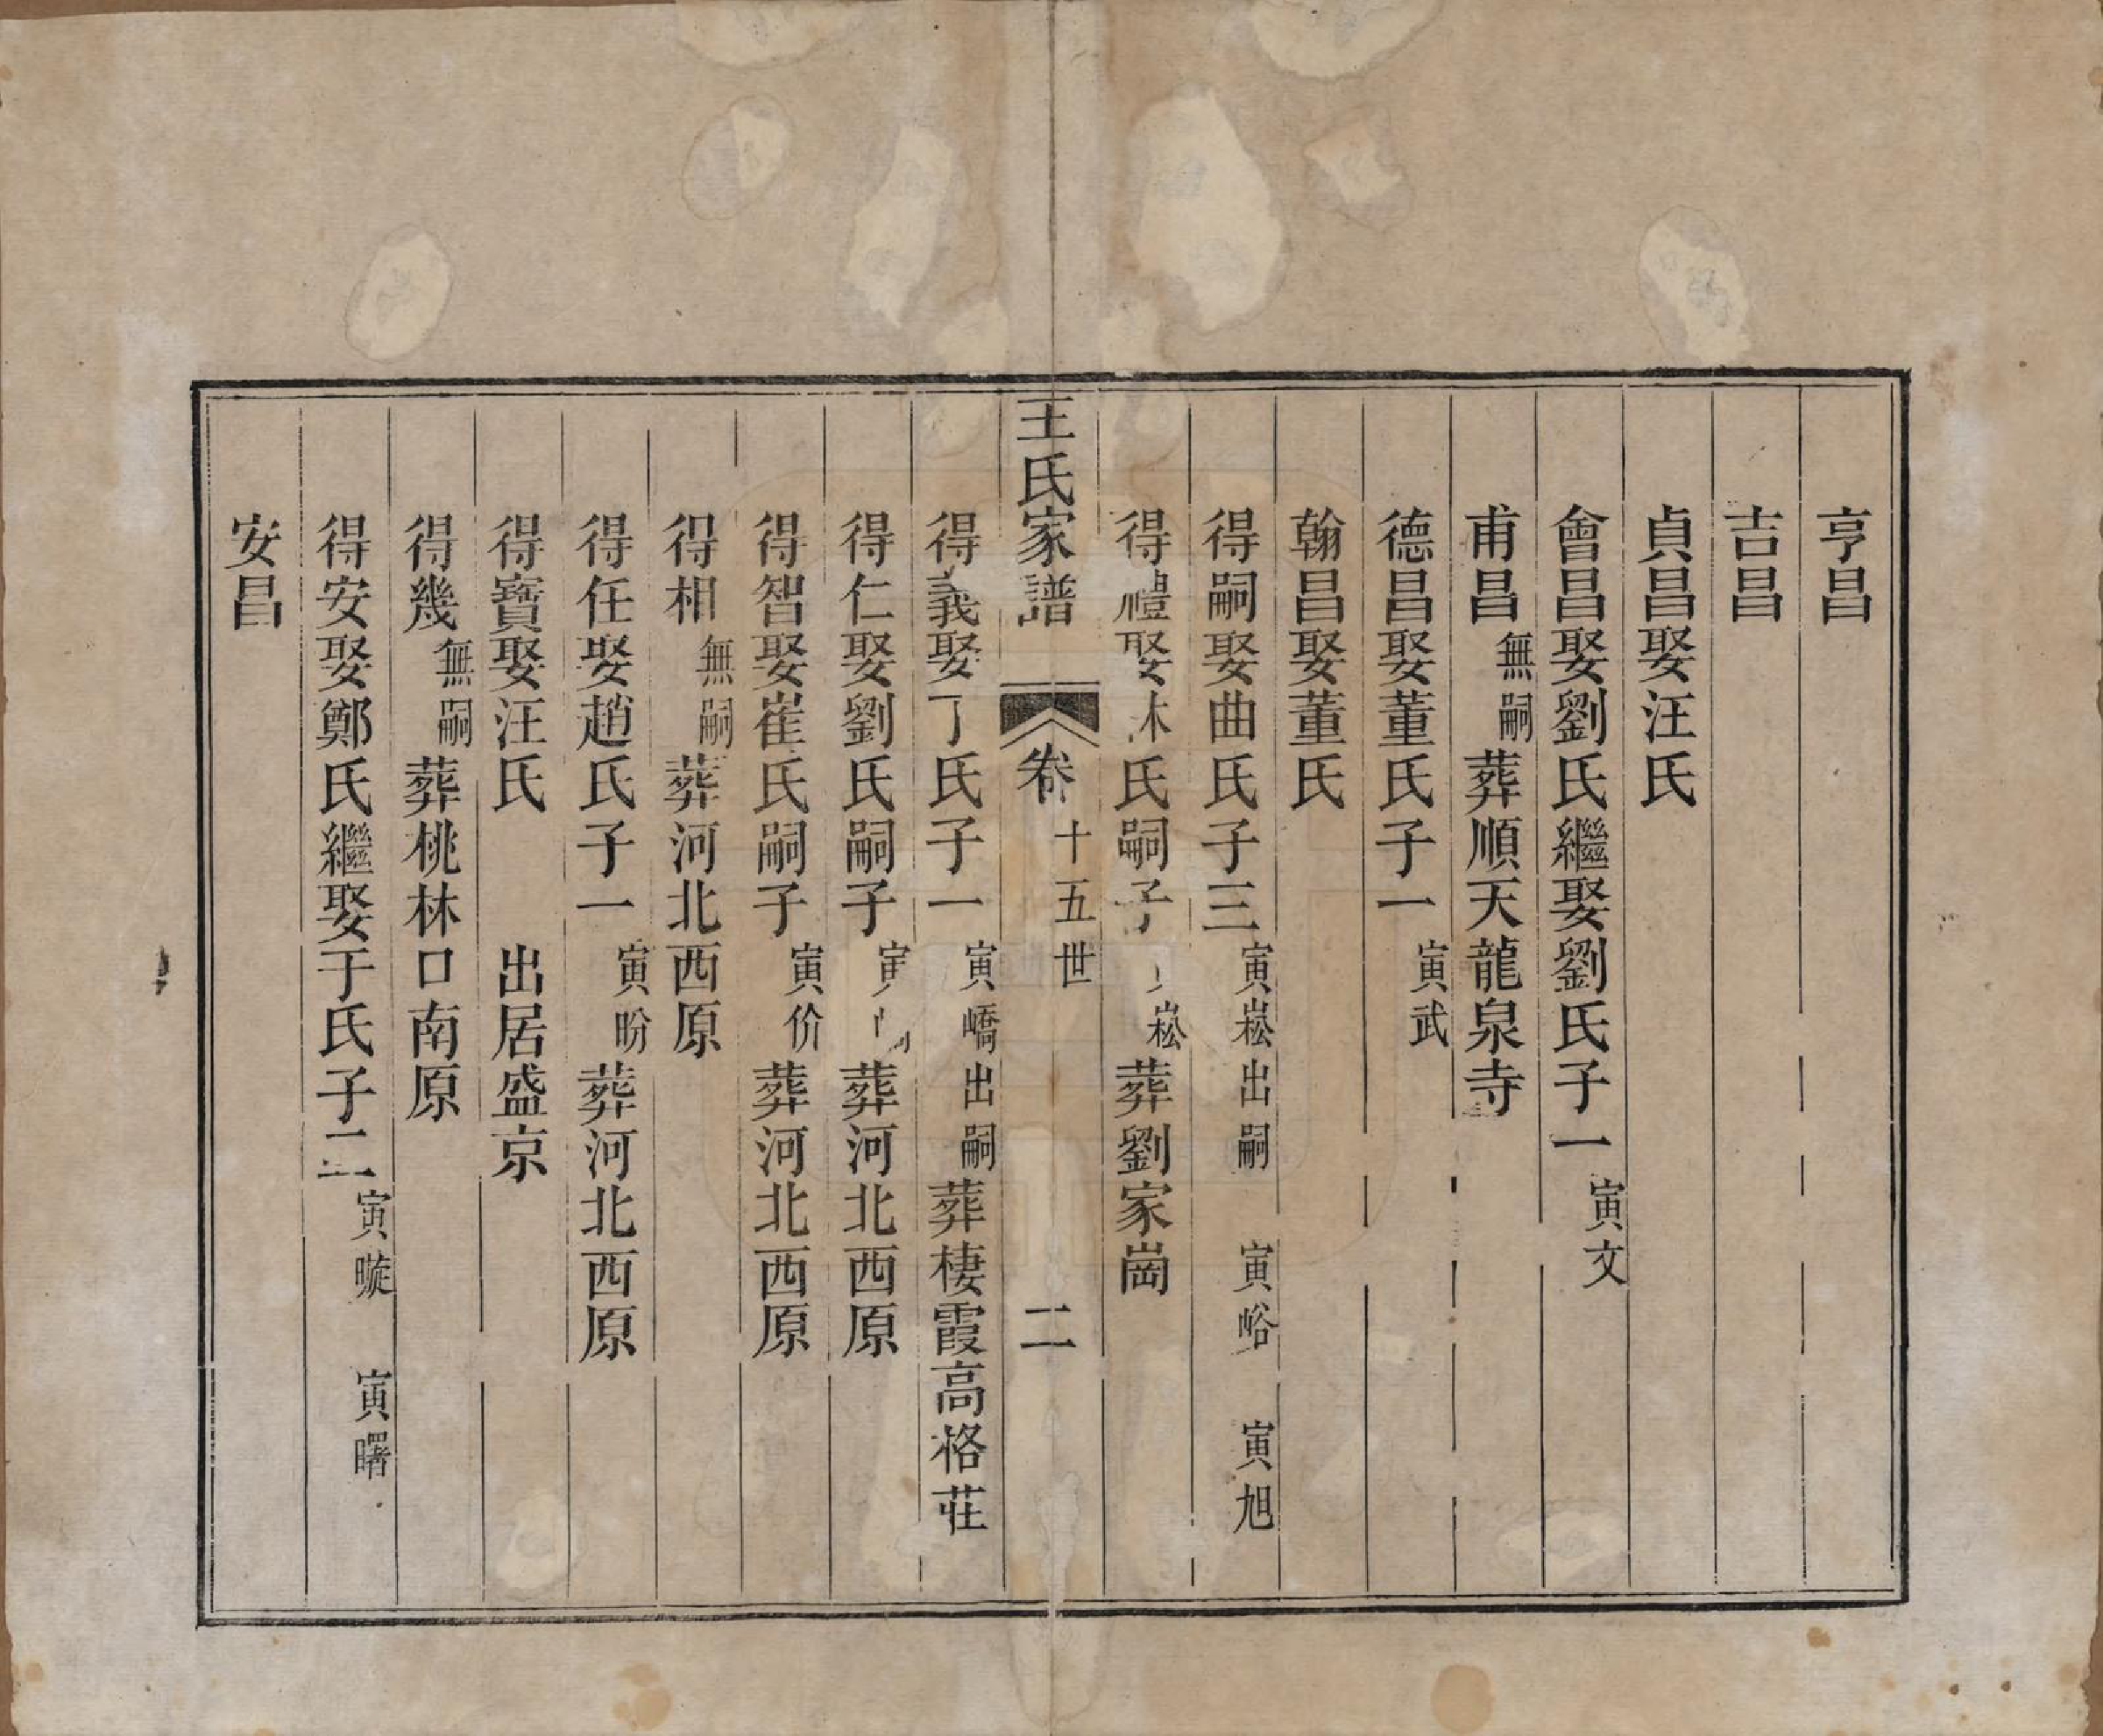 亨昌
吉昌
貞昌娶汪氏
會昌娶劉氏繼娶劉氏子一寅文
甫昌無嗣葬順天龍泉寺
德昌娶董氏子一寅武
翰昌娶董氏
得嗣娶曲氏子三寅崧出嗣 寅峪 寅旭
得禮娶林氏嗣子寅崧葬劉家崗
王氏家譜 卷 十五世 二
得義娶丁氏子一寅嶠出嗣葬棲霞高格莊
得仁娶劉氏嗣子寅葬河北西原
得智娶崔氏嗣子寅价葬河北西原
得相無嗣葬河北西原
得任娶趙氏子一寅昐葬河北西原
得寶娶汪氏 出居盛京
得幾無嗣葬桃林口南原
得安娶鄭氏繼娶于氏子二寅暶 寅曙
安昌